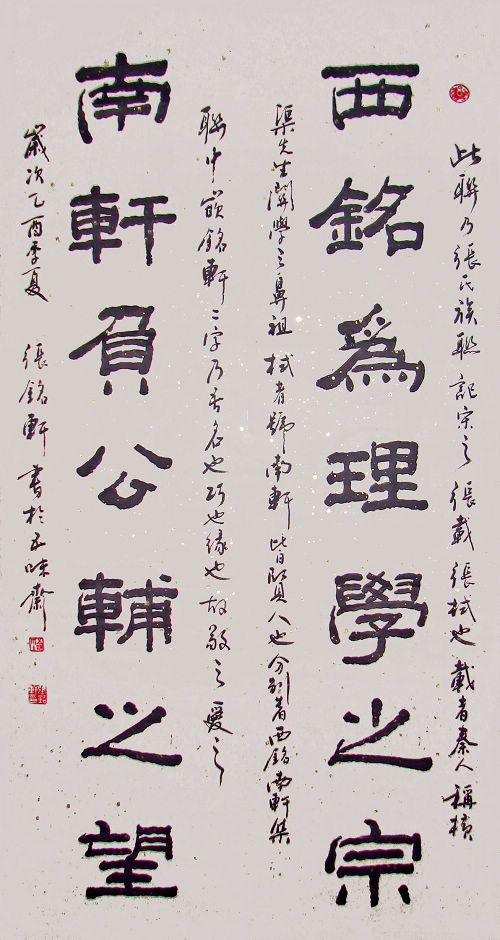 此聯乃張氏族聯記宋之張載張栻也載者秦人稱橫
西銘爲理學之宗
渠先生關學之鼻祖栻者號南軒皆賢人也分別著西銘南軒集
聯中嵌銘軒二字乃吾名也巧也緣也故敬之愛之
南軒負公輔之望
歲次乙酉季夏 張銘軒書於五味齋